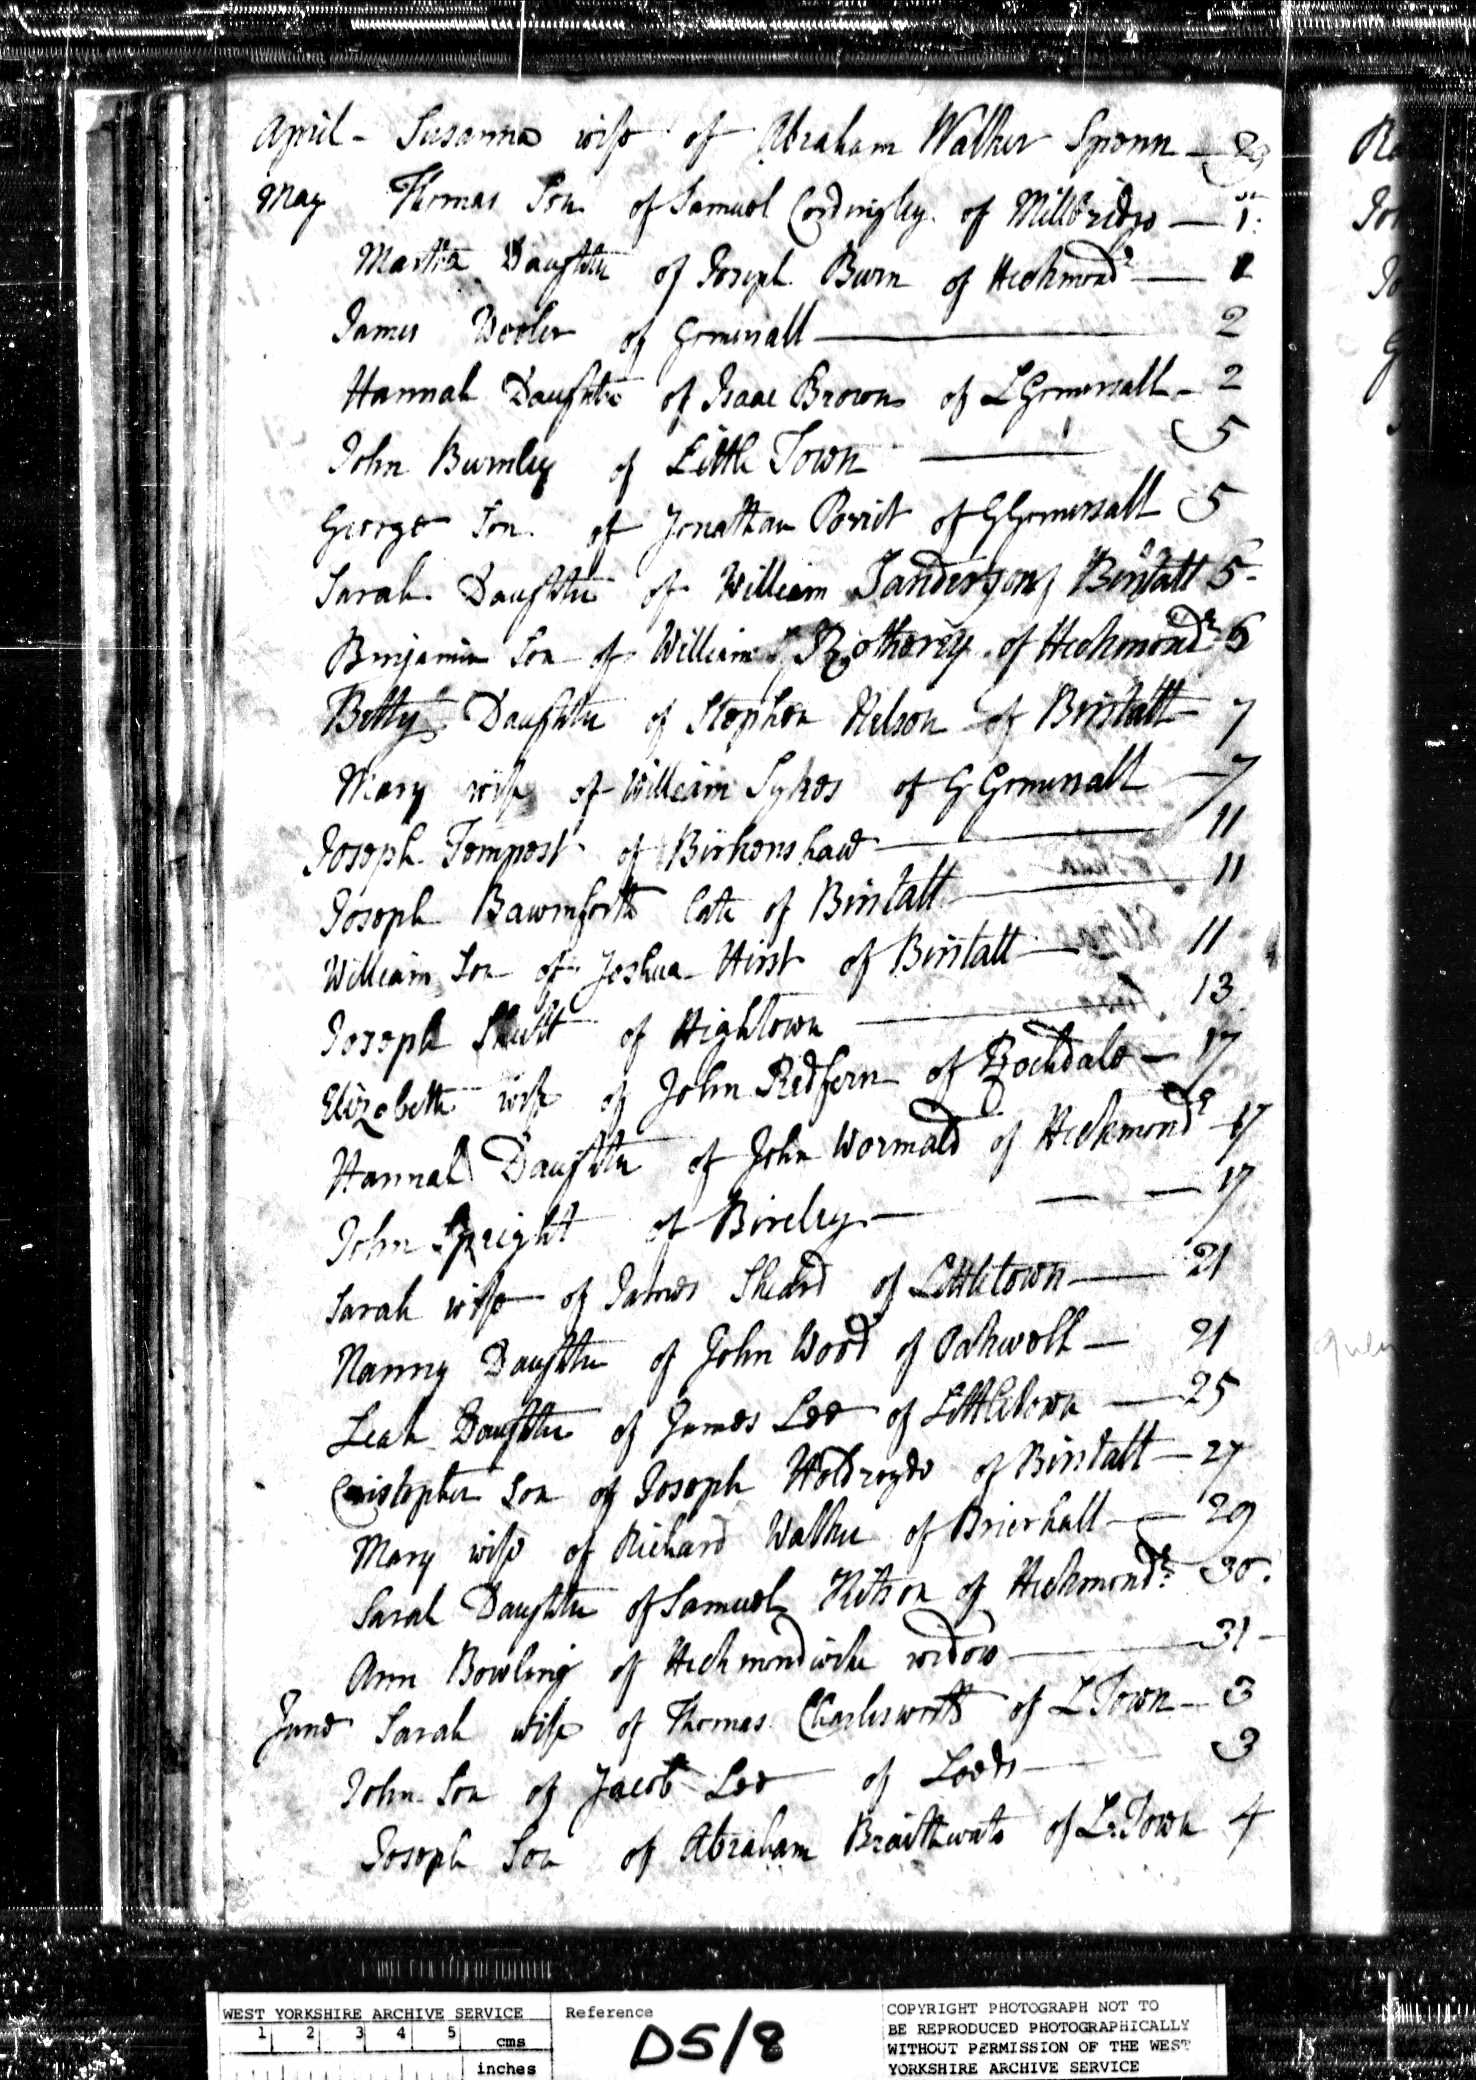 April - Susanna wife of Abraham Walker Spenn - 29
May Thomas Son of Samuel Cordingley of Millbridge - 1st
Martha Daughter of Joseph Burn of Heckmondᵉ - 1
James Wooler of Gomersall - 2
Hannah Daughter of Isaac Brown of L Gomersall - 2
John Burnley of Little Town - 5
George Son of Jonathan Porrit of G Gomersall 5
Sarah Daughter of William Sanderson of Birstall 5
Benjamin Son of William Rothery of Heckmondᵉ 6
Betty Daughter of Stephen Nelson of Birstall - 7
Mary wife of William Sykes of G Gomersall - 7
Joseph Tempest of Birkenshaw - 11
Joseph Bawmforth late of Birstall - 11
William Son of Joshua Hirst of Birstall - 11
Joseph Shutt of Hightown - 13
Elizabeth wife of John Redfern of Rochdale - 17
Hannah Daughter of John Wormald of Heckmondᵉ - 17
John Speight of Bireley - 17
Sarah wife of James Sheard of Littletown - 21
Nanny Daughter of John Wood of Oakwell - 21
Leah Daughter of James Lee of Littletown - 25
Cristopher Son of Joseph Holdroyde of Birstall - 27
Mary wife of Richard Walker of Brierhall - 29
Sarah Daughter of Samuel Kitson of Heckmondᵉ 30
Ann Bowling of Heckmondwike widow - 31
June Sarah wife of Thomas Charlesworth of L Town - 3
John Son of Jacob Lee of Leeds - 3
Joseph Son of Abraham Braithwate of L. Town 4
WEST YORKSHIRE ARCHIVE SERVICE
1 2 3 4 5 cms
inches
Reference
D5/8
COPYRIGHT PHOTOGRAPH NOT TO
BE REPRODUCED PHOTOGRAPHICALLY
WITHOUT PERMISSION OF THE WEST
YORKSHIRE ARCHIVE SERVICE